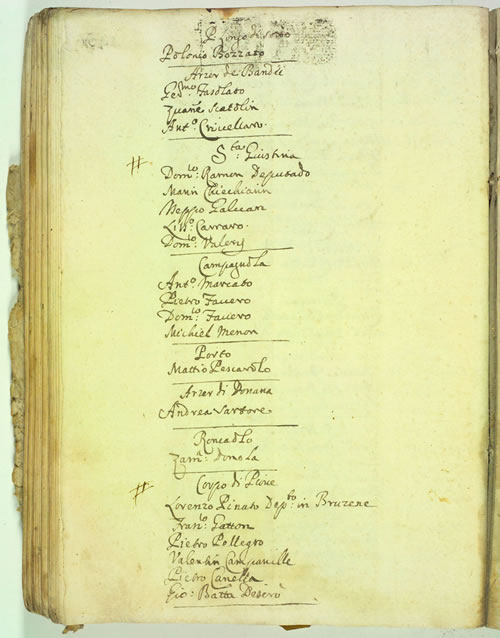 P. Longo di sotto
Polonio Bozzato
Arzer de Bandii
Ger.mo Fasolato
Zuane Scatolin
Ant.o Crivellaro.
S.ta Giustina
Dom.co: Ramon Deputado
Marin Chiechiarin
Beppo Galvan
Carraro.
Dom.co: Valery
Campagnola
Ant.o Marcato
Pietro Favero
Dom.co: Favero
Michiel Menon
Porto
Mattio Pescarolo
Arzer di Donana
Andrea Sartore
Roncadlo
Zam.a: Domola
Corpo di Piove
Lorenzo Pinato Dep.to in Bruzene
Fran.co: Gatton
Pietro Pollegro
Valentin Campanille
Pietro Canella
Gio: Batta Desero